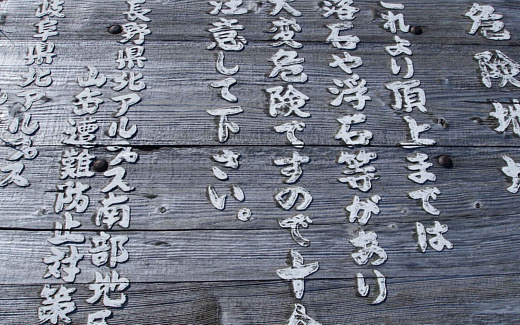 危険地
これより頂上までは
落石や浮石等があり
大変危険ですので十分
注意して下さい。
長野県北アルプス南部地区
山岳遭難防止対策
岐阜県北アルプス